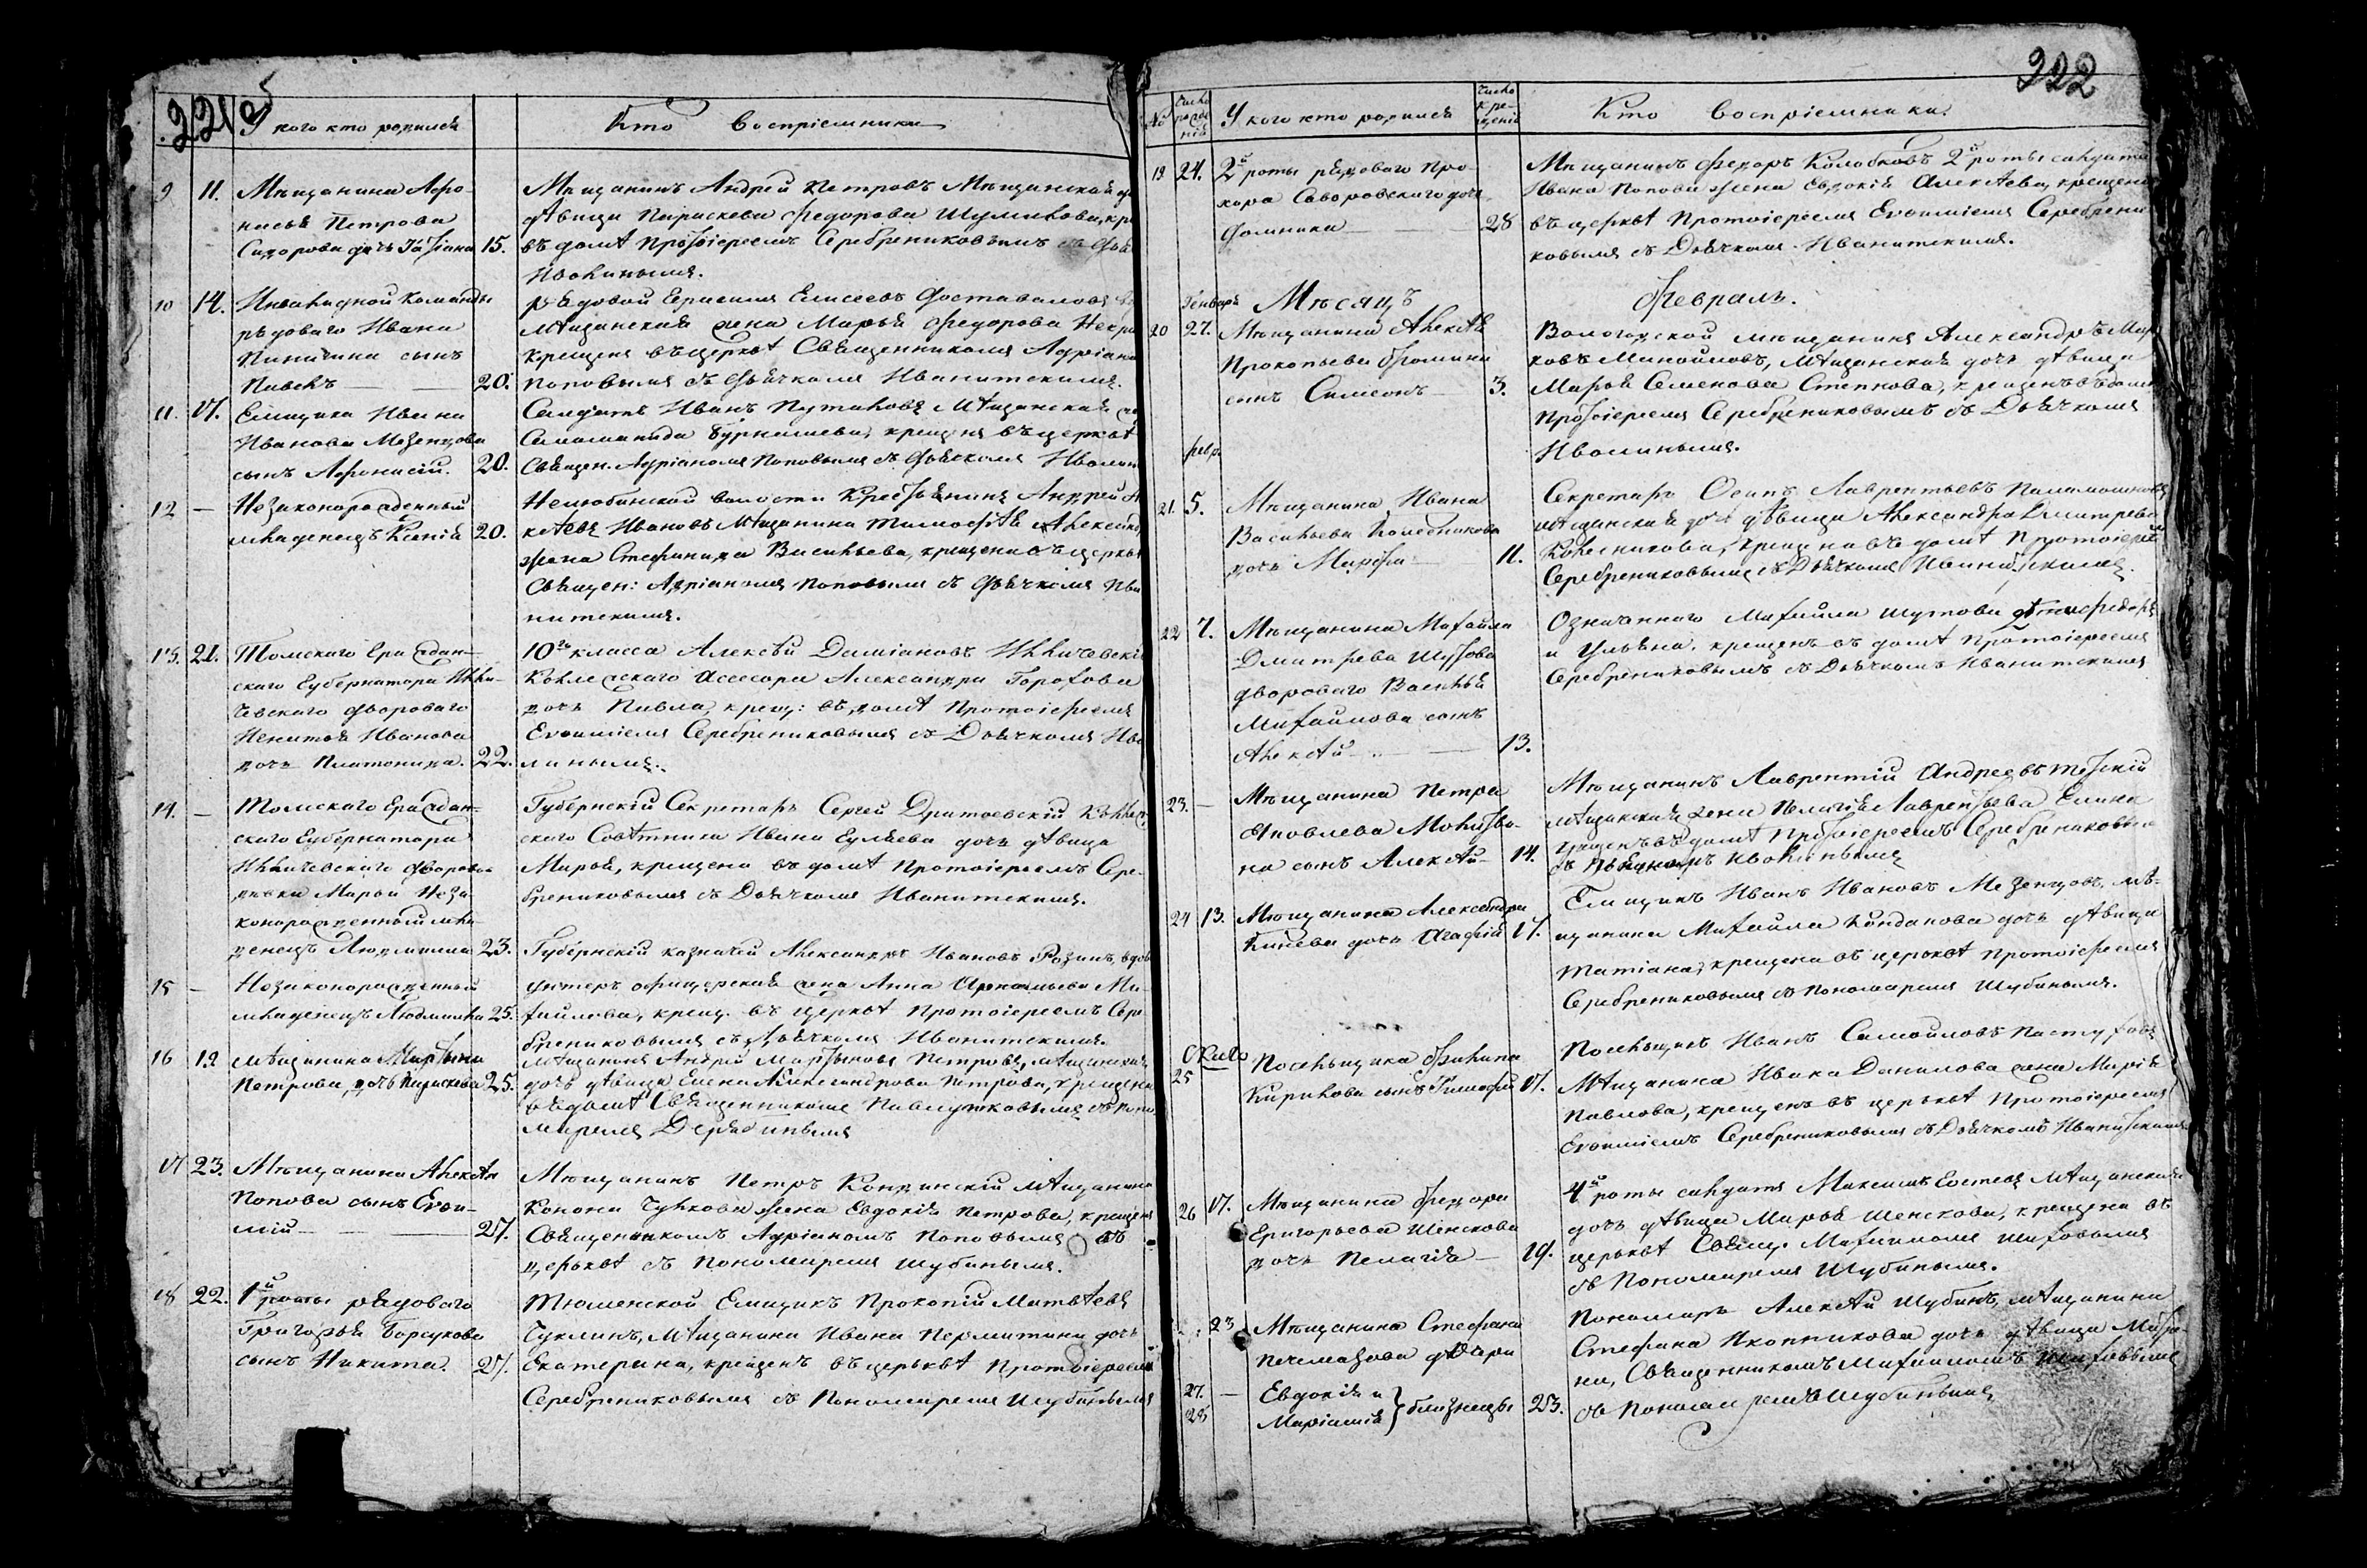 221 об
У кого кто родился
Кто Воспріемники
9 11. Мѣщанина Афо-
насья Петрова
Сидорова дочь Татіана 15.
Мѣщанинъ Андрей Петровъ Мѣщанской
дѣвица Параскева Федорова Шумилова,
въ домѣ Протоіереемъ Серебрениковымъ съ
Иволинымъ.
10 14. Инвалидной Команды
рядоваго Ивана
сынъ
Павелъ 20.
рядовой Герасимъ Елисеевъ
мѣщанская жена Марья Федорова
крещенъ въ церквѣ Священникомъ Адріаномъ
Поповымъ съ Дьячкомъ Иванитскимъ.
11. 17. Ямщика Ивана
Иванова Мезенцова
сынъ Афонасій. 20.
Салдатъ Иванъ Путиловъ Мѣщанская
Саламанида Бурнашева, крещенъ въ церквѣ
Священ. Адріаномъ Поповымъ съ Дьячкомъ
12 — Незаконорожденный
младенецъ Ксенія 20.
Нелюбинской волости Крестьянинъ Андрей
Ивановъ Мѣщанина Тимофѣя
жена Степанида Васильева, крещена въ церквѣ
Священ: Адріаномъ Поповымъ съ Дьячкомъ Ива
нитскимъ.
13. 21. Томскаго Граждан-
скаго Губернатора Илли-
чевскаго двороваго
Никиты Иванова
дочь Платонида. 22.
10го класса Алексѣй Даміановъ Илличевскій
Коллежскаго Ассесора Александра Горохова
дочь Павла, крещ: въ домѣ Протоіереемъ
Евѳиміемъ Серебрениковымъ съ Дьячкомъ Иво
линымъ.
14. — Томскаго Граждан-
скаго Губернатора
Илличевскаго дворовой
дѣвки Марьи Неза-
конорожденный мла-
денецъ Людмила 23.
Губернскій Секретарь Сергей
скаго Совѣтника Ивана Гуляева дочь дѣвица
Марья, крещена въ домѣ Протоіереемъ Сере-
брениковымъ съ Дьячкомъ Иванитскимъ.
15 — Незаконорожденный
младенецъ Людмила 25.
Губернскій казначей Александръ Ивановъ
унтеръ офицерская жена Анна Ми-
хайлова, крещ. въ церквѣ Протоіереемъ Сере-
брениковымъ съ Дьячкомъ Иванитскимъ.
16 19 Мѣщанина Мартына
Петрова, дочь Параскева 25.
Мѣщанинъ Андрей Мартыновъ Петровъ, мѣщанская
дочь дѣвица Елена Александрова Петрова, крещена
въ домѣ Священникомъ съ Поно-
маремъ
17 23. Мѣщанина Алексѣя
Попова сынъ Евѳи-
мій 27.
Мѣщанинъ Петръ Кондинскій мѣщанина
Конона Чулкова жена Евдокія Петрова, крещенъ
Священникомъ Адріаномъ Поповымъ въ
церквѣ съ Пономаремъ Шубинымъ.
18 22. 1й роты рядоваго
Григорья Барсукова
сынъ Никита. 27.
Тюменской Ямщикъ Прокопій Матвѣевъ
Чуклинъ, Мѣщанина Ивана Пермитина дочь
Екатерина, крещенъ въ церквѣ Протоіереемъ
Серебрениковымъ съ Пономаремъ Шубинымъ
222
№
Число рожденія
У кого кто родился
Число крещенія
Кто Воспріемники.
19 24. 2й роты рядоваго Про-
хора Саворовскаго дочь
Домника 28
Мѣщанинъ Федоръ Колобковъ 2й роты салдата
Ивана Попова жена Евдокія Алексѣева, крещена
въ церквѣ Протоіереемъ Евѳиміемъ Серебрени
ковымъ съ Дьячкомъ Иванитскимъ.
Мѣсяцъ Февраль.
Генваря
20 27. Мѣщанина Алексѣя
Прокопьева Фомина
сынъ Симеонъ 3.
Вологодской мѣщанинъ Александръ Мар
ковъ Мѣщанская дочь дѣвица
Марья Семенова Степнова, крещенъ въ домѣ
Протоіереемъ Серебрениковымъ съ Дьячкомъ
Иволинымъ.
февр.
21. 5. Мѣщанина Ивана
Васильева Колесникова
дочь Марфа 11.
Секретарь Осипъ Лаврентьевъ
мѣщанская дочь дѣвица Александра Дмитрева
Колесникова, крещена въ домѣ Протоіереемъ
Серебрениковымъ съ Дьячкомъ Иванитскимъ.
22 7. Мѣщанина Михайла
Дмитрева Шутова
двороваго Василья
Михайлова сынъ
Алексѣй 13.
Означеннаго Михайла Шутова дѣти Федоръ
и Ульяна, крещенъ въ домѣ Протоіереемъ
Серебрениковымъ съ Дьячкомъ Иванитскимъ
23. — Мѣщанина Петра
Яковлева
на сынъ Алексѣй 14.
Мѣщанинъ Лаврентій Андреевъ
мѣщанская жена Пелагія Лаврентьева
крещенъ въ домѣ Протоіереемъ Серебрениковымъ
съ Дьячкомъ Иволинымъ
24 13. Мѣщанина Александра
дочь Агафія 17.
Ямщикъ Иванъ Ивановъ Мезенцовъ, мѣ-
щанина Михайла Кондакова дочь дѣвица
Татіана, крещена въ церквѣ Протоіереемъ
Серебрениковымъ съ Пономаремъ Шубинымъ.
25 Посельщика Филипа
Кирилова сынъ Тимофей 17.
Посельщикъ Иванъ Самойловъ Пастуховъ
Мѣщанина Ивана Данилова жена Марія
Павлова, крещенъ въ церквѣ Протоіереемъ
Евѳиміемъ Серебрениковымъ съ Дьячкомъ Иванитскимъ
26 17. Мѣщанина Федора
Григорьева Шенскова
дочь Пелагія 19.
4й роты салдатъ Максимъ мѣщанская
дочь дѣвица Марья Шенскова, крещена въ
церквѣ Свящ. Михаиломъ Шиховымъ
съ Пономаремъ Шубинымъ.
23 Мѣщанина Стефана
дочери
27. — Евдокія и
28 Маріамія } близнецы 23.
Пономарь Алексѣй Шубинъ, мѣщанина
Стефана Иконникова дочь дѣвица Матре-
на, Священникомъ Михаиломъ Шиховымъ
съ Пономаремъ Шубинымъ